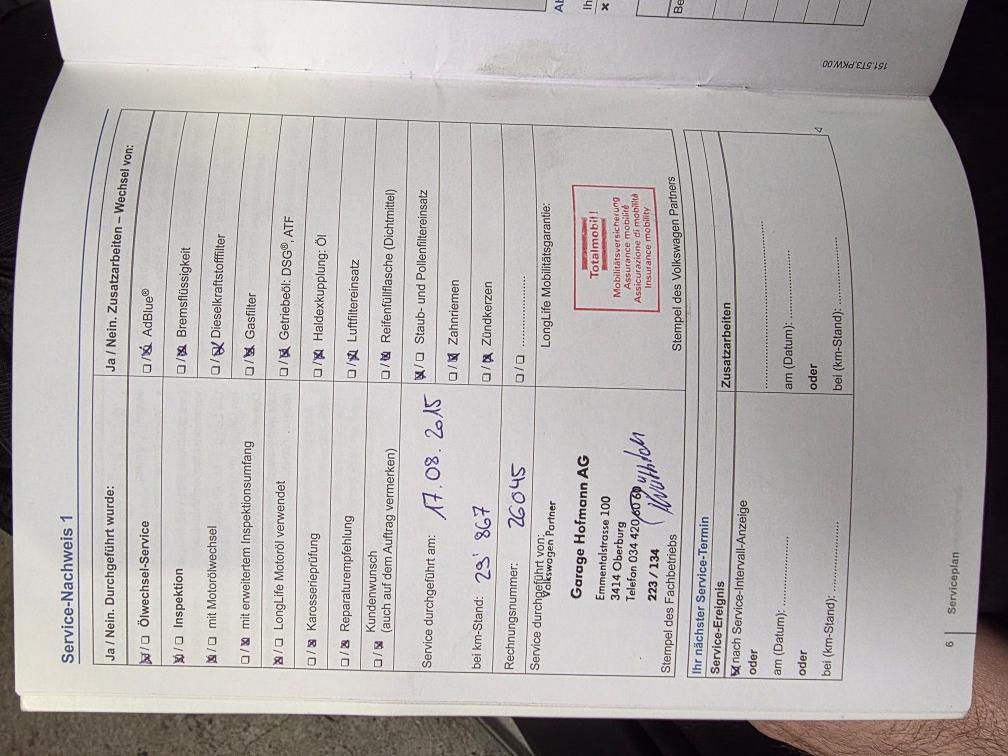 Service-Nachweis 1
Ja / Nein. Durchgeführt wurde:
☒/☐ Ölwechsel-Service
☒/☐ Inspektion
☒/☐ mit Motorölwechsel
☐/☒ mit erweitertem Inspektionsumfang
☒/☐ LongLife Motoröl verwendet
☐/☒ Karosserieprüfung
☐/☒ Reparaturempfehlung
☐/☒ Kundenwunsch
(auch auf dem Auftrag vermerken)
Service durchgeführt am: 17.08.2015
bei km-Stand: 29'867
Rechnungsnummer: 26045
Service durchgeführt von:
Volkswagen Partner
Garage Hofmann AG
Emmentalstrasse 100
3414 Oberburg
Telefon 034 420 60 60
223 / 134
Stempel des Fachbetriebs
Ja / Nein. Zusatzarbeiten – Wechsel von:
☐/☒ AdBlue®
☐/☒ Bremsflüssigkeit
☐/☒ Dieselkraftstofffilter
☐/☒ Gasfilter
☐/☒ Getriebeöl: DSG®, ATF
☐/☒ Haldexkupplung: Öl
☐/☒ Luftfiltereinsatz
☐/☒ Reifenfüllflasche (Dichtmittel)
☒/☐ Staub- und Pollenfiltereinsatz
☐/☒ Zahnriemen
☐/☒ Zündkerzen
☐/☐ ................
LongLife Mobilitätsgarantie:
Totalmobil!
Mobilitätsversicherung
Assurance mobilité
Assicurazione di mobilità
Insurance mobility
Stempel des Volkswagen Partners
Ihr nächster Service-Termin
Service-Ereignis
☒ nach Service-Intervall-Anzeige
oder
am (Datum): ................
oder
bei (km-Stand): ................
Zusatzarbeiten
................
am (Datum): ................
oder
bei (km-Stand): ................
6 Serviceplan
151.5T3.PKW.00
Ih
Be